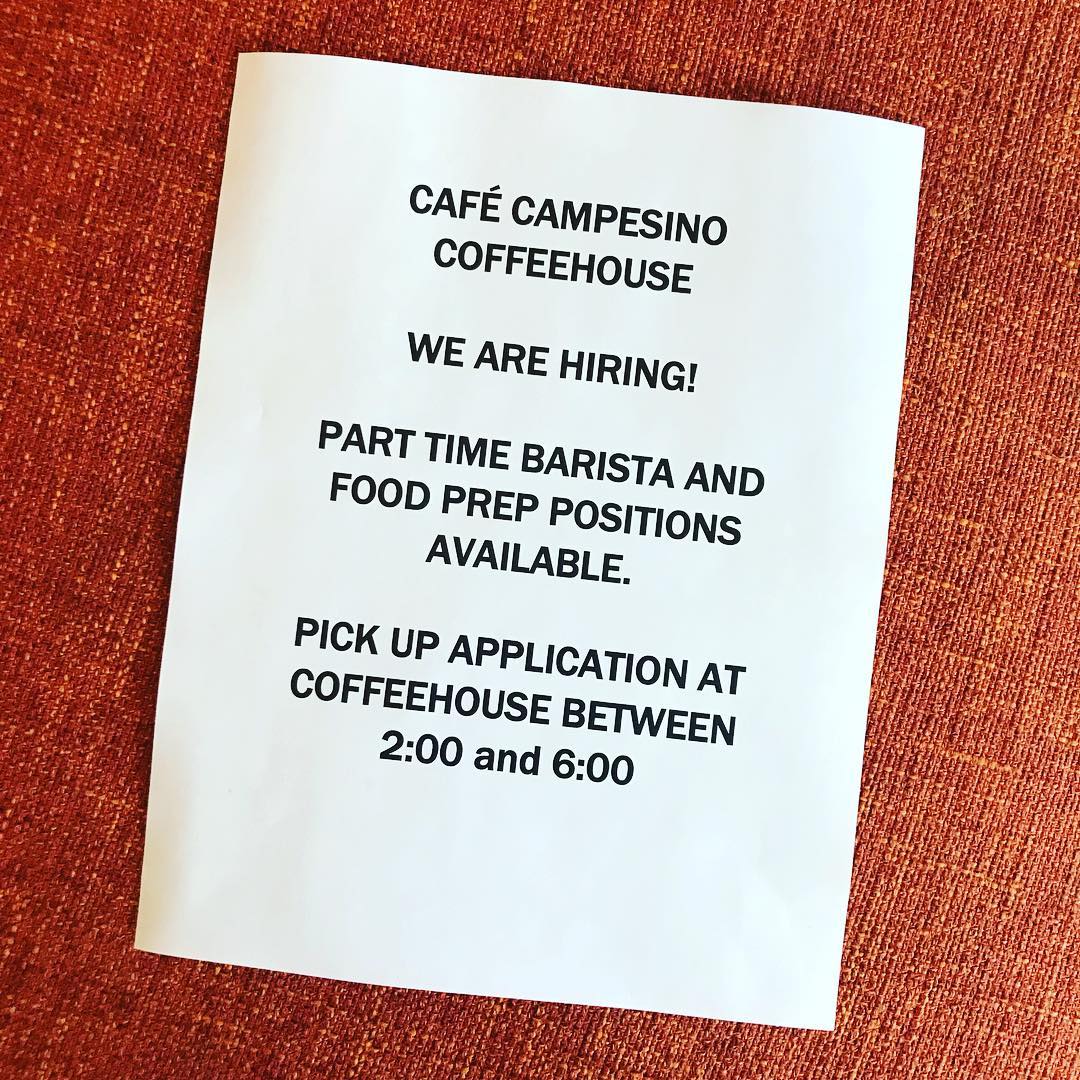 CAFÉ CAMPESINO
COFFEEHOUSE
WE ARE HIRING!
PART TIME BARISTA AND
FOOD PREP POSITIONS
AVAILABLE.
PICK UP APPLICATION AT
COFFEEHOUSE BETWEEN
2:00 and 6:00